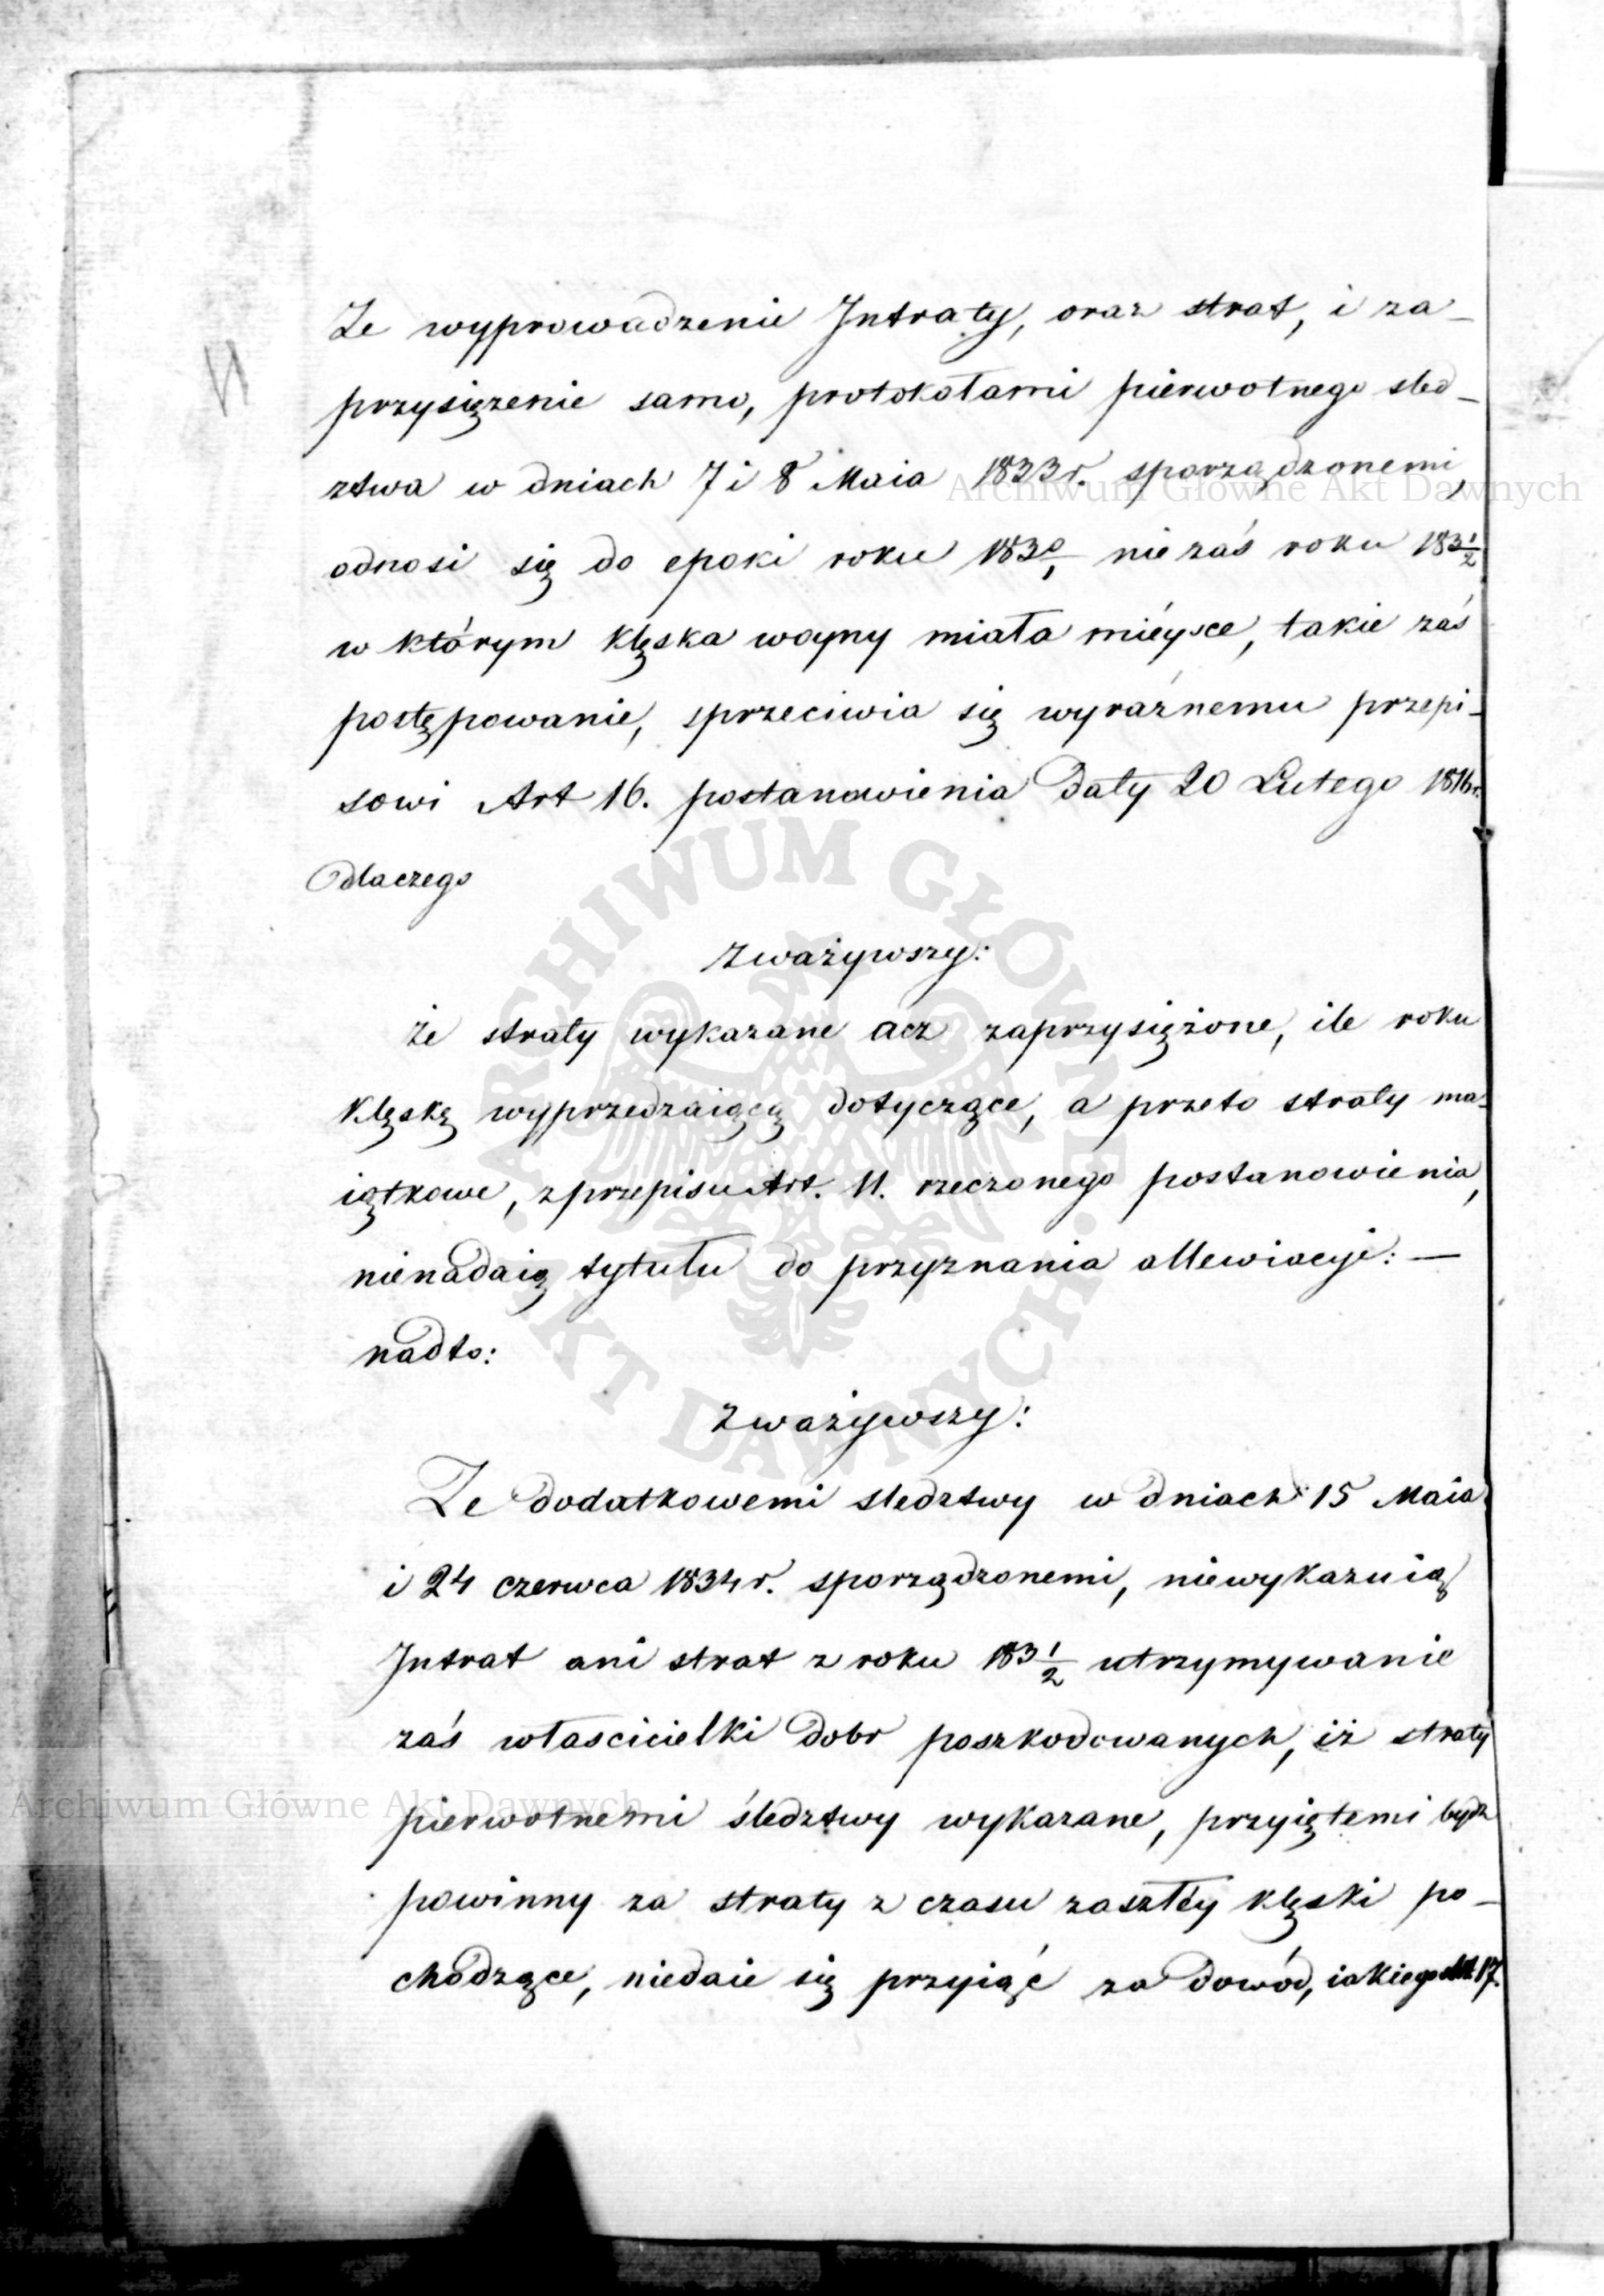 Ze wyprowadzenie Intraty, oraz strat, i za-
przysiężenie samo, protokołami pierwotnego sled-
ztwa w dniach 7 i 8 Maia 1833 r. sporządzonemi,
odnosi się do epoki roku 183 0/1 nie zaś roku 183 1/2
w którym klęska woyny miała mieysce, takie zaś
postępowanie, sprzeciwia się wyraźnemu przepi-
sowi Art 16. postanowienia daty 20 Lutego 1816 r.
dlaczego
zważywszy:
że straty wykazane acz zaprzysiężone, ile roku
klęskę wyprzedzaiącą dotyczące, a przeto straty ma-
iątkowe, z przepisu Art. 11. rzeczonego postanowienia,
nienadaią tytułu do przyznania allewiacyi: —
nadto:
zważywszy:
Ze dodatkowemi sledztwy w dniach 15 Maia
i 24 czerwca 1834 r. sporządzonemi, niewykazuią
Intrat ani strat z roku 183 1/2 utrzymywanie
zaś własicielki dobr poszkodowanych, iż straty
pierwotnemi śledztwy wykazane, przyiętemi bydz
powinny za straty z czasu zaszłéy klęski po-
chodzące, niedaie się przyiąć za dowód, iakiego Art. 17.
Archiwum Główne Akt Dawnych
ARCHIWUM GŁÓWNE AKT DAWNYCH
Archiwum Główne Akt Dawnych